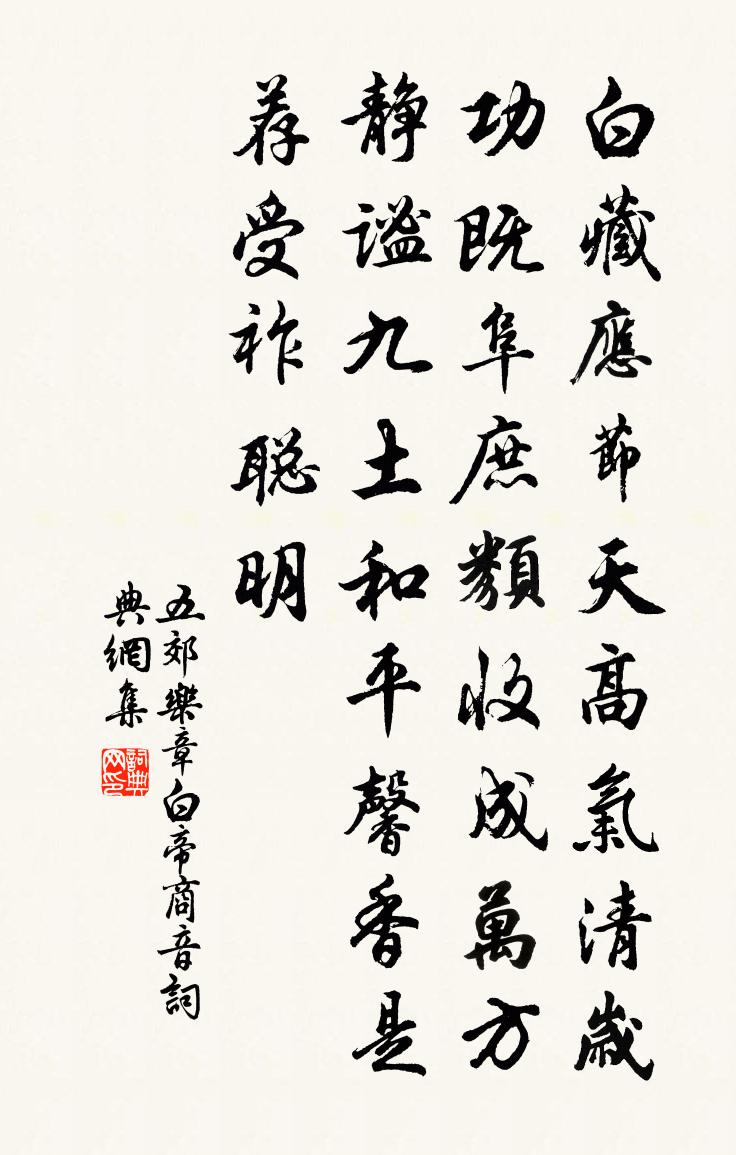 白藏應節天高氣清歲
功既阜庶類收成萬方
靜谧九土和平馨香是
荐受祚聪明
五郊樂章白帝商音詞
典網集
詞典网印